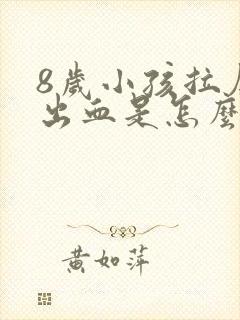 8歲小孩拉
出血是怎麼
黃如萍